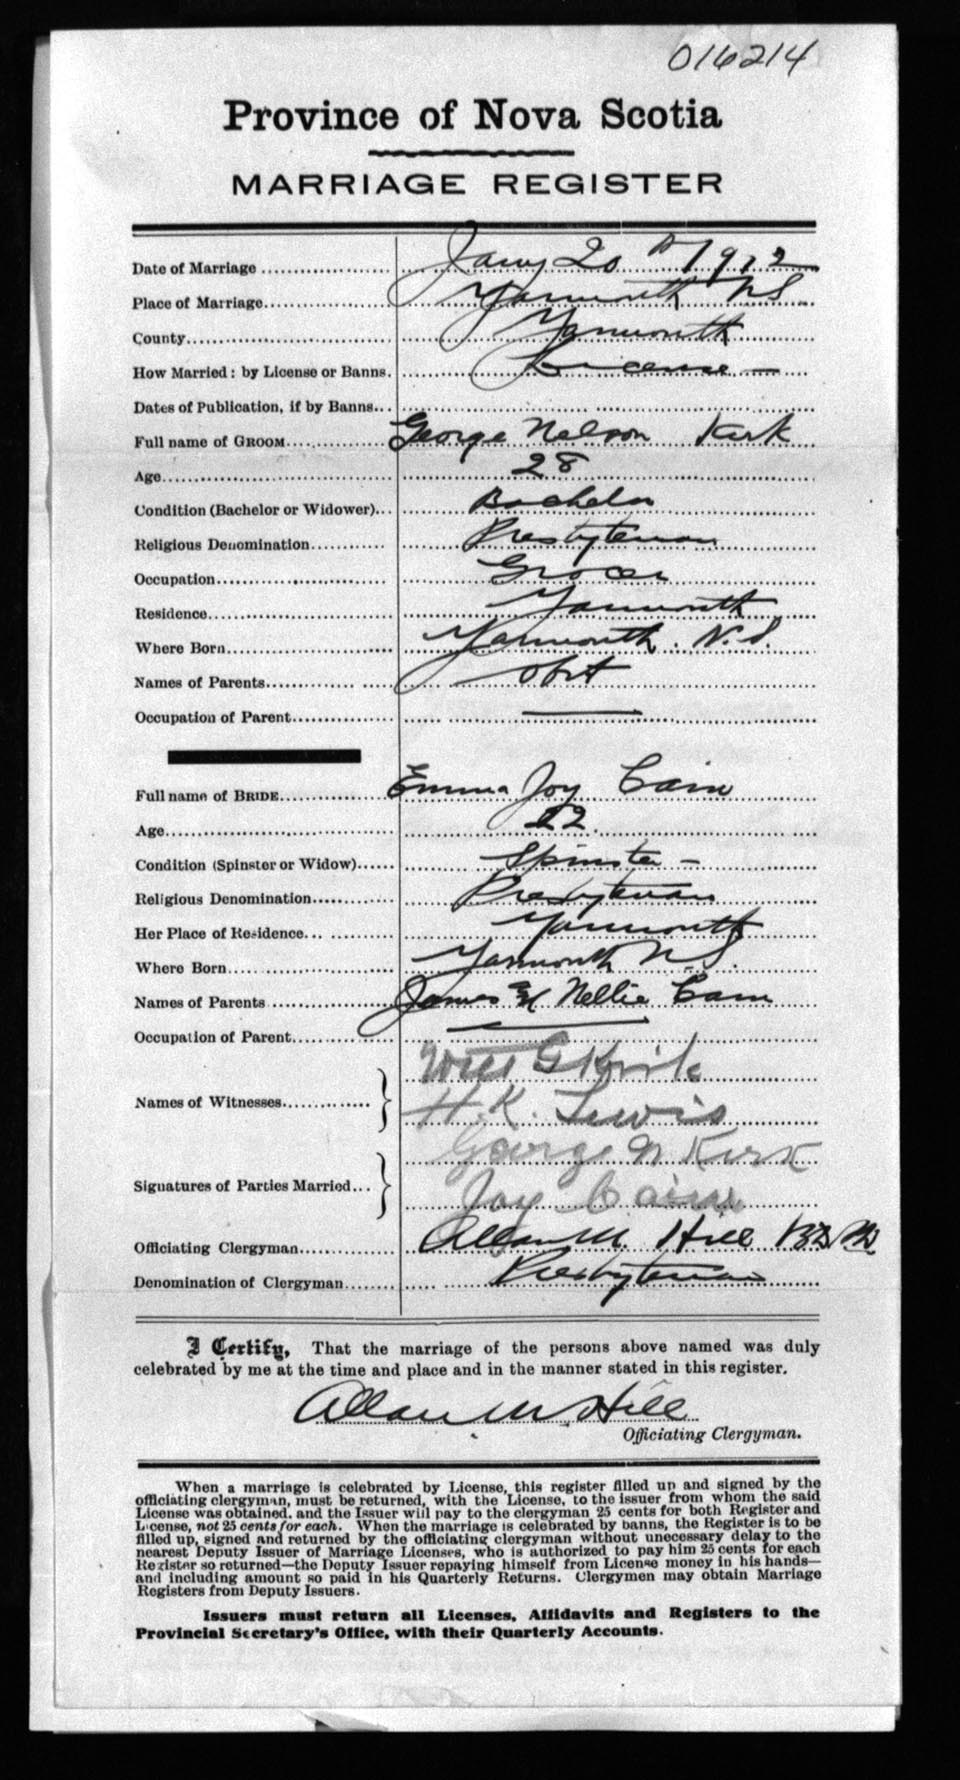 016214
Province of Nova Scotia
MARRIAGE REGISTER
Date of Marriage Jany 20th 1912
Place of Marriage Yarmouth NS.
County Yarmouth
How Married: by License or Banns. License —
Dates of Publication, if by Banns
Full name of GROOM George Nelson Kirk
Age 28
Condition (Bachelor or Widower) Bachelor
Religious Denomination Presbyterian
Occupation Grocer
Residence Yarmouth
Where Born Yarmouth. N.S.
Names of Parents
Occupation of Parent —
Full name of BRIDE Emma Joy Cain
Age 22.
Condition (Spinster or Widow) Spinster —
Religious Denomination Presbyterian
Her Place of Residence Yarmouth
Where Born Yarmouth N.S.
Names of Parents James & Nellie Cain
Occupation of Parent —
Will G Kirk
Names of Witnesses
H. K. Lewis
George N Kirk
Signatures of Parties Married
Joy Cain
Officiating Clergyman Allan M. Hill
Denomination of Clergyman Presbyterian
I Certify, That the marriage of the persons above named was duly
celebrated by me at the time and place and in the manner stated in this register.
Allan M. Hill
Officiating Clergyman.
When a marriage is celebrated by License, this register filled up and signed by the
officiating clergyman, must be returned, with the License, to the issuer from whom the said
License was obtained, and the Issuer will pay to the clergyman 25 cents for both Register and
License, not 25 cents for each. When the marriage is celebrated by banns, the Register is to be
filled up, signed and returned by the officiating clergyman without unnecessary delay to the
nearest Deputy Issuer of Marriage Licenses, who is authorized to pay him 25 cents for each
Register so returned—the Deputy Issuer repaying himself from License money in his hands—
and including amount so paid in his Quarterly Returns. Clergymen may obtain Marriage
Registers from Deputy Issuers.
Issuers must return all Licenses, Affidavits and Registers to the
Provincial Secretary's Office, with their Quarterly Accounts.